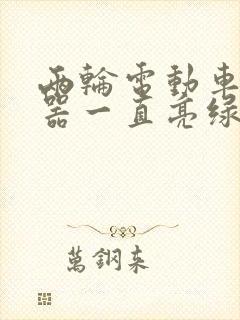 兩輪電動車
器一直亮綠
萬鋼來